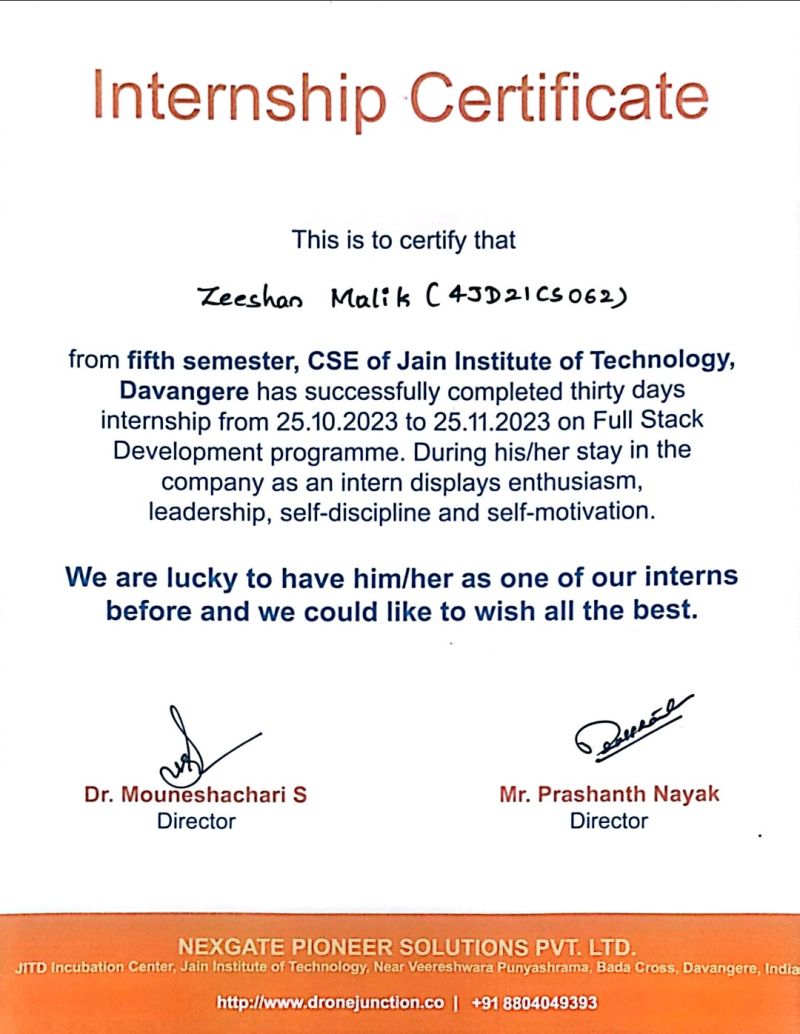 Internship Certificate
This is to certify that
Zeeshan Malik (4JD21CS062)
from fifth semester, CSE of Jain Institute of Technology,
Davangere has successfully completed thirty days
internship from 25.10.2023 to 25.11.2023 on Full Stack
Development programme. During his/her stay in the
company as an intern displays enthusiasm,
leadership, self-discipline and self-motivation.
We are lucky to have him/her as one of our interns
before and we could like to wish all the best.
Dr. Mouneshachari S
Director
Mr. Prashanth Nayak
Director
NEXGATE PIONEER SOLUTIONS PVT. LTD.
JITD Incubation Center, Jain Institute of Technology, Near Veereshwara Punyashrama, Bada Cross, Davangere, India
http://www.dronejunction.co | +91 8804049393